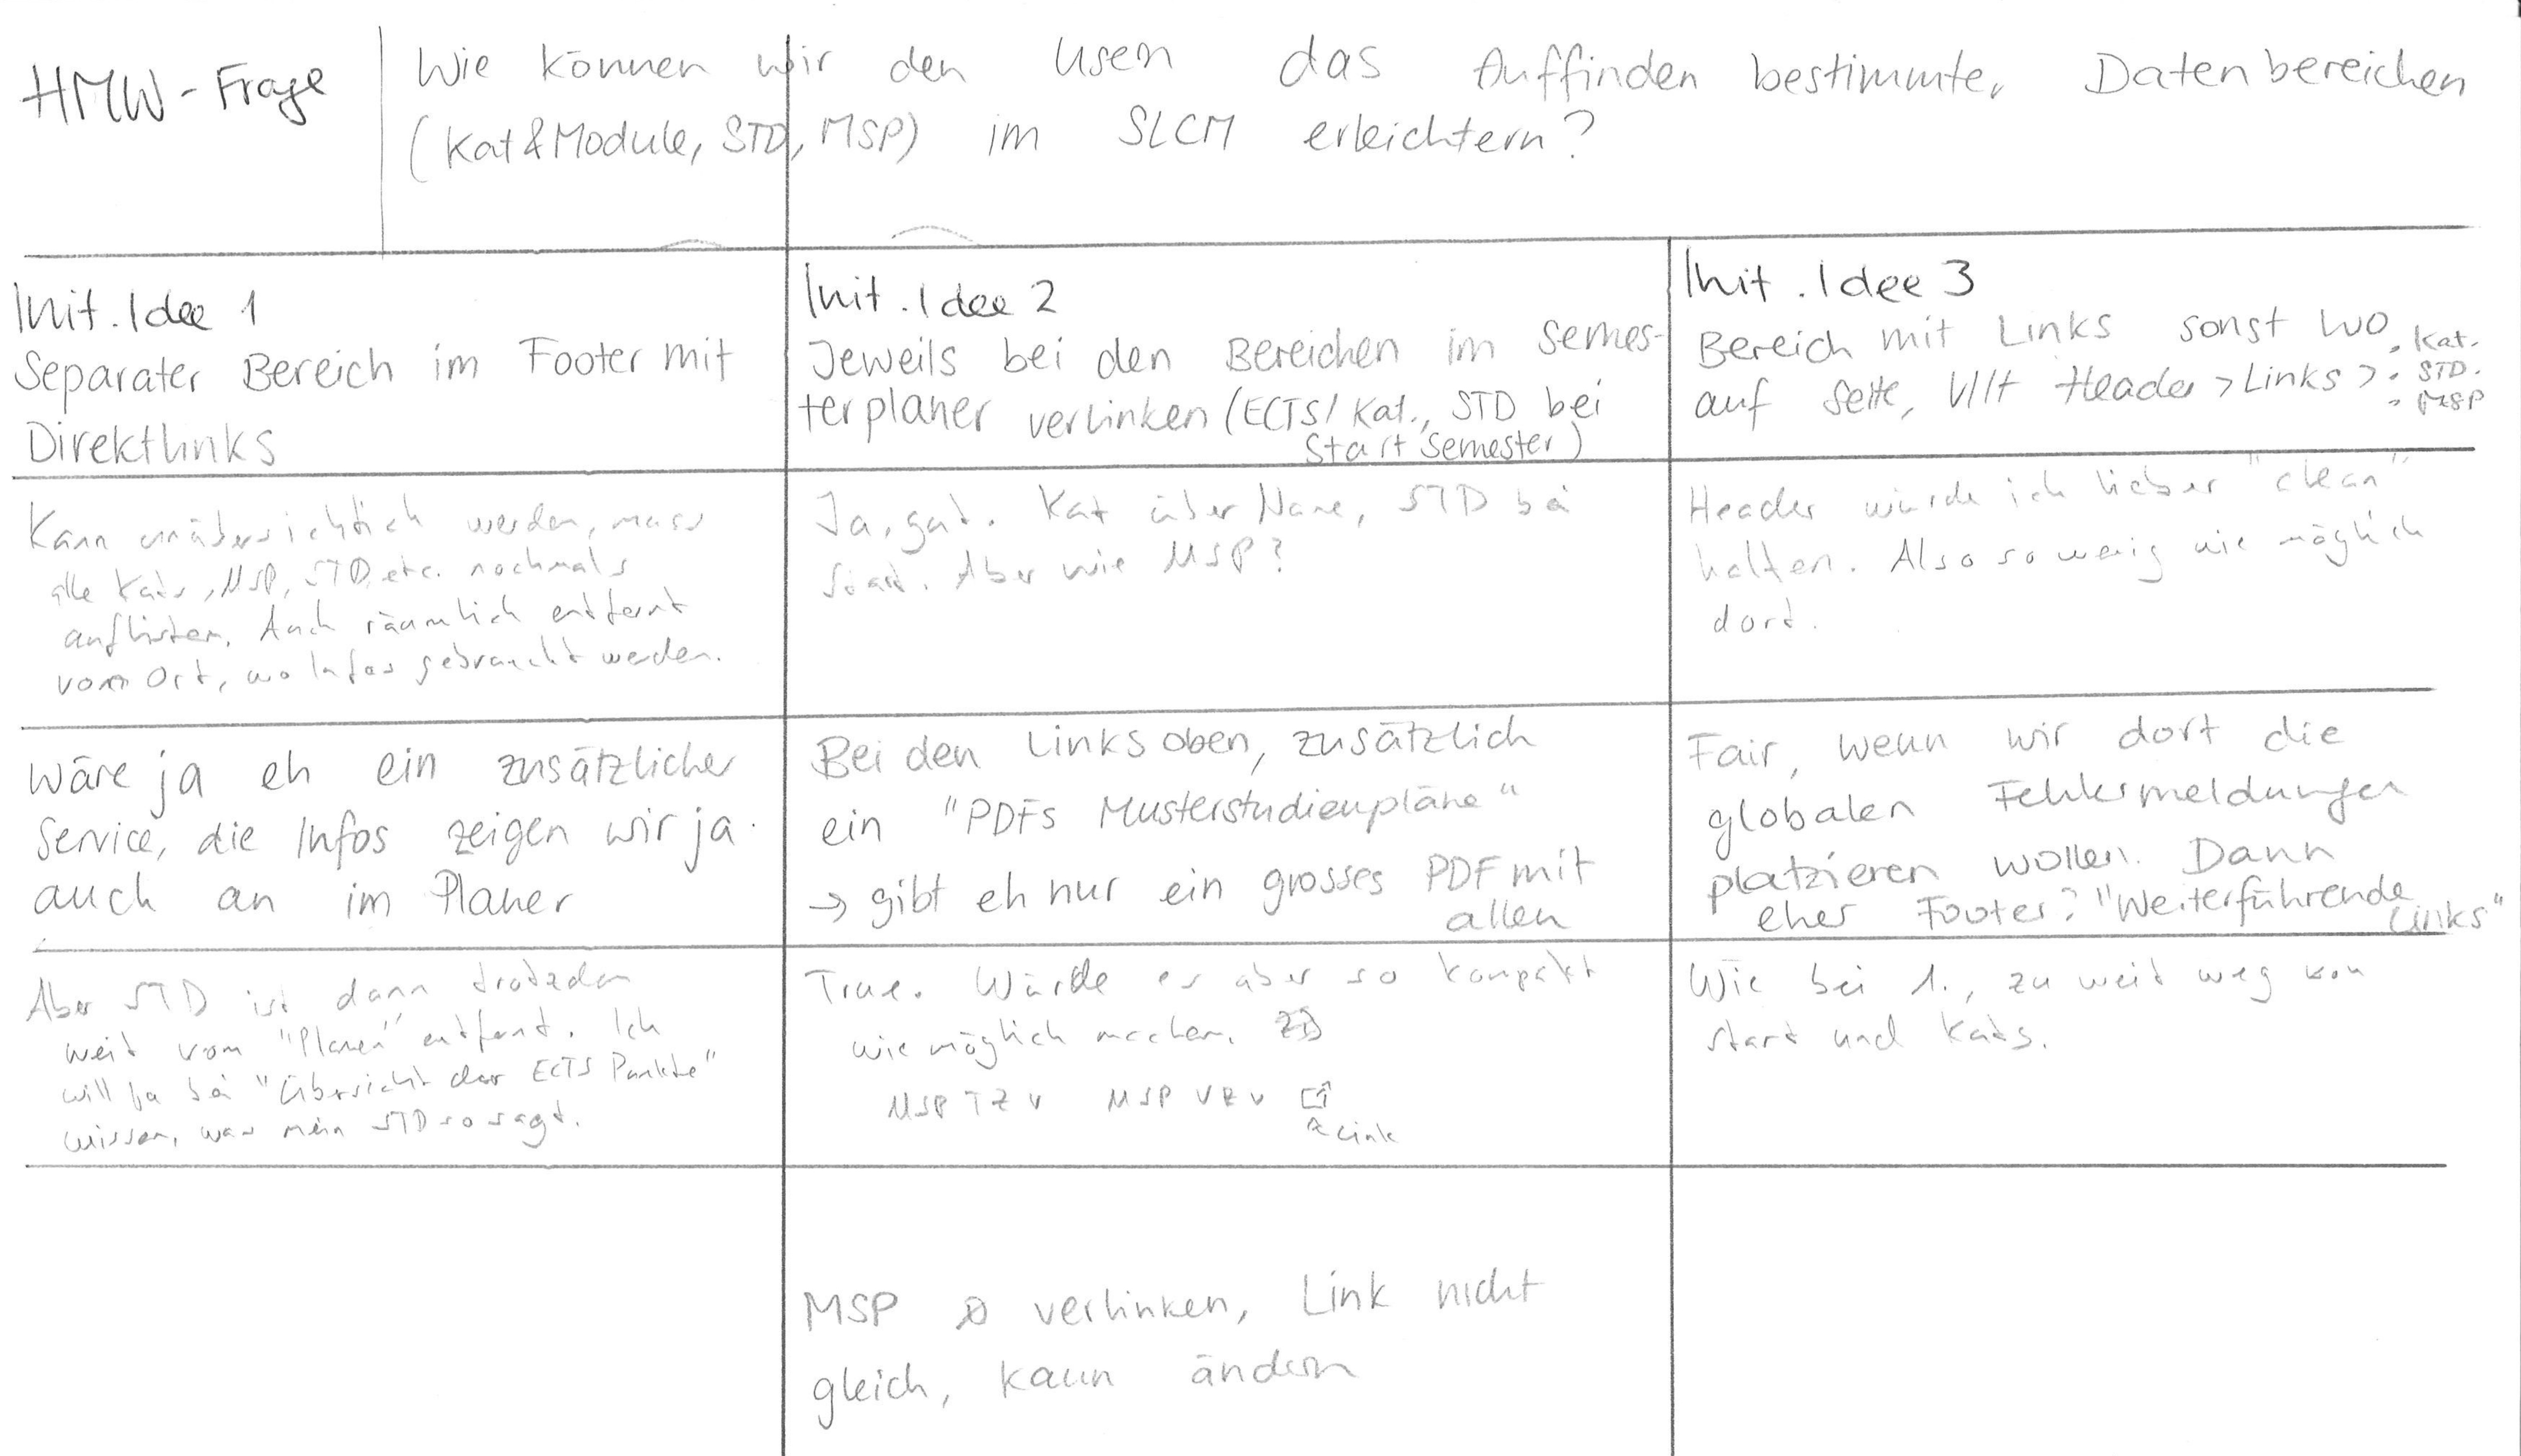 HMW-Frage
Wie können wir den Usern das Auffinden bestimmter Datenbereichen
(Kat&Module, STD, MSP) im SLCM erleichtern?
Init. Idee 1
Separater Bereich im Footer mit
Direktlinks
Init. Idee 2
Jeweils bei den Bereichen im Semes-
terplaner verlinken (ECTS/Kat., STD bei
Start Semester)
Init. Idee 3
Bereich mit Links sonst wo
auf Seite, Header > Links > • Kat.
• STD.
• MSP
Kann unübersichtlich werden, muss
alle Kats, MSP, STD, etc. nochmals
auflisten. Auch räumlich entfernt
vom Ort, wo Infos gebraucht werden.
Ja, gut. Kat über Name, STD bei
Start. Aber wie MSP?
Header würde ich lieber "clean"
halten. Also so wenig wie möglich
dort.
Wäre ja eh ein zusätzlicher
Service, die Infos zeigen wir ja
auch an im Planer
Bei den Links oben, zusätzlich
ein "PDFs Musterstudienpläne"
→ gibt eh nur ein grosses PDF mit
allen
Fair, wenn wir dort die
globalen Fehlermeldungen
platzieren wollen. Dann
eher Footer? "Weiterführende
Links"
Aber STD ist dann trotzdem
weit vom "Planer" entfernt. Ich
will ja bei "Übersicht der ECTS Punkte"
wissen, was mein STD so sagt.
True. Würde es aber so kompakt
wie möglich machen.
MSP TZ v MSP VZ v
Link
Wie bei 1., zu weit weg von
Start und Kats.
MSP verlinken, Link nicht
gleich, kann ändern